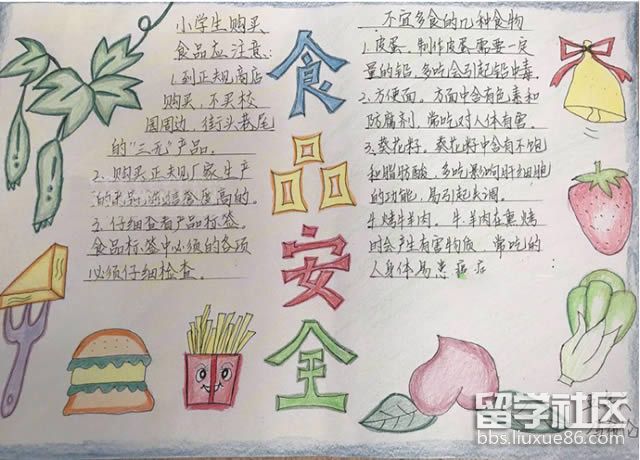 小学生购买
食品应注意:
1.到正规商店
购买,不买校
园周边,街头巷尾
的“三无”产品。
2.购买正规厂家生产
的
度高的。
3.仔细查看产品标签。
食品标签中必须的各项
必须仔细检查。
食
品
安
全
不宜多食的几种食物
1.皮蛋。制作皮蛋需要一定
量的铅,多吃会引起铅中毒
2.方便面。方面中含有色素和
防腐剂,常吃对人体有害。
3.葵花籽。葵花籽中含有不饱
和脂肪酸,多吃影响肝细胞
的功能,易引起失调。
4.烤牛羊肉。牛羊肉在熏烤
时会产生有害物质,常吃的
人身体易患癌症
留学社区
bbs.liuxue86.com